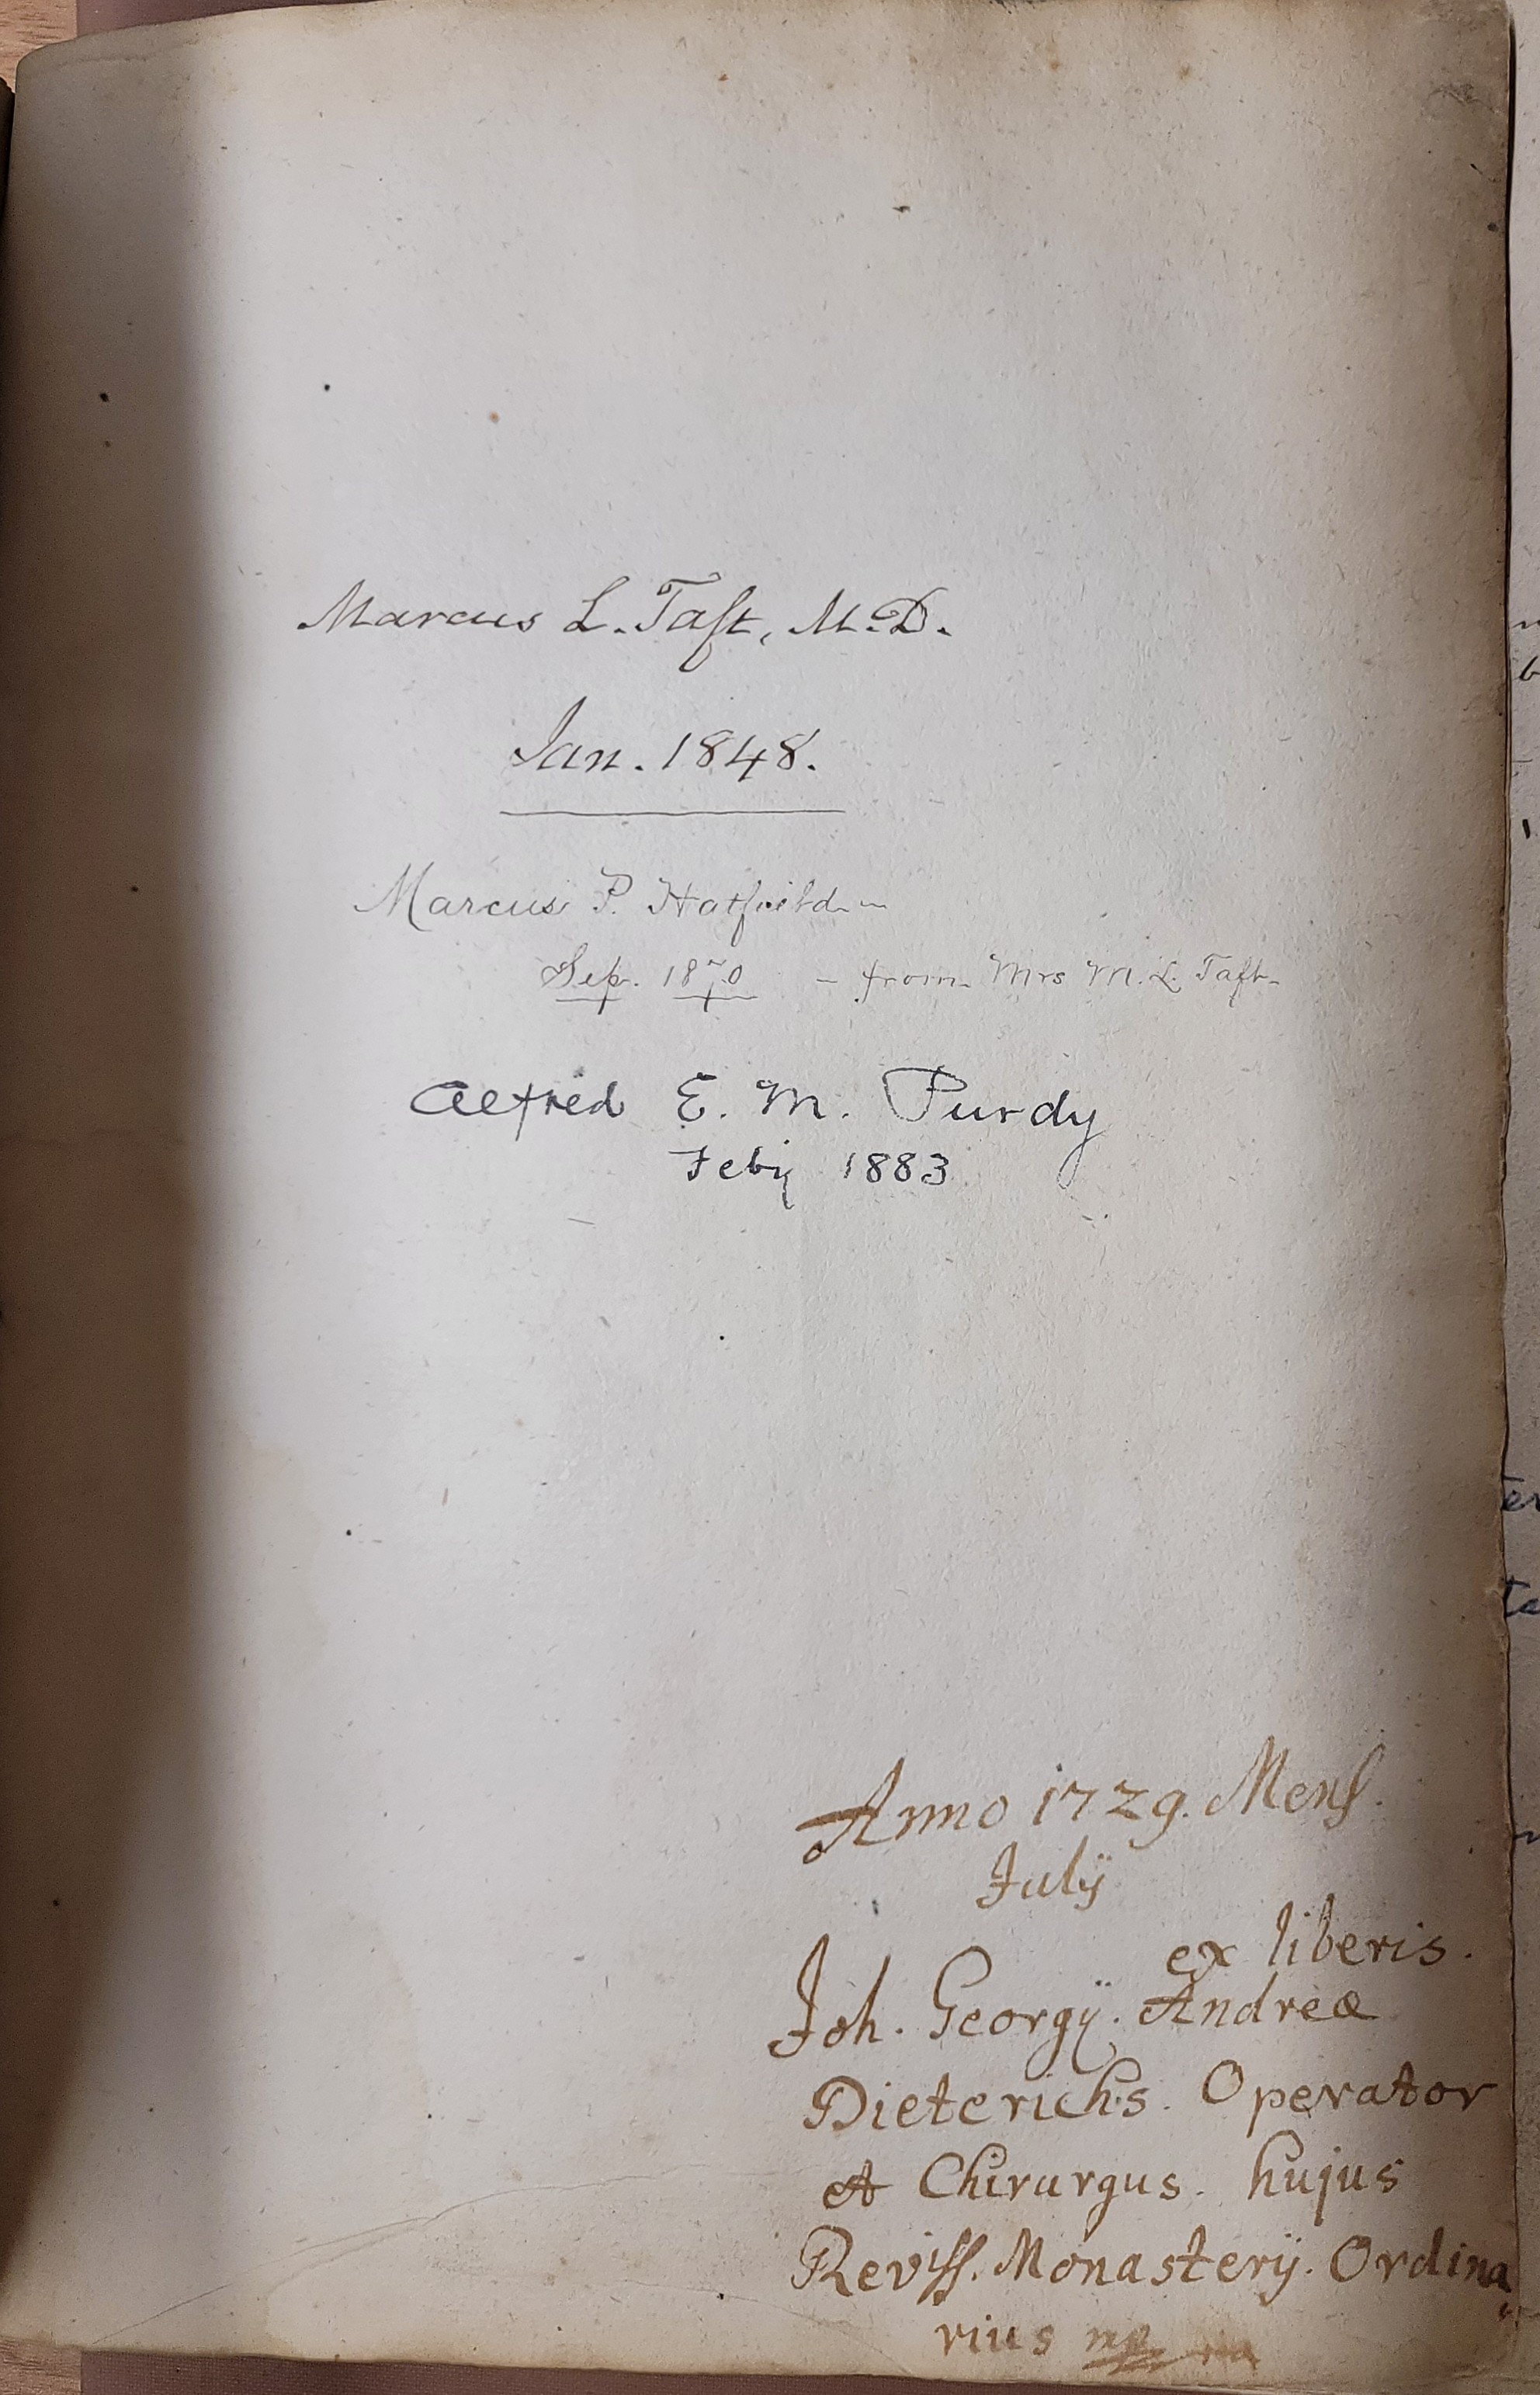 Marcus L. Taft, M.D.
Jan. 1848.
Marcus P. Hatfield
Sep. 1870 - from Mrs M. L. Taft-
Alfred E. M. Purdy
Feby 1883
Anno 1729. Mens.
Julÿ
ex liberis.
Joh. Georgÿ. Andreæ
Dieterichs. Operator
et Chirurgus. hujus
Reviss. Monasterÿ. Ordina
rius